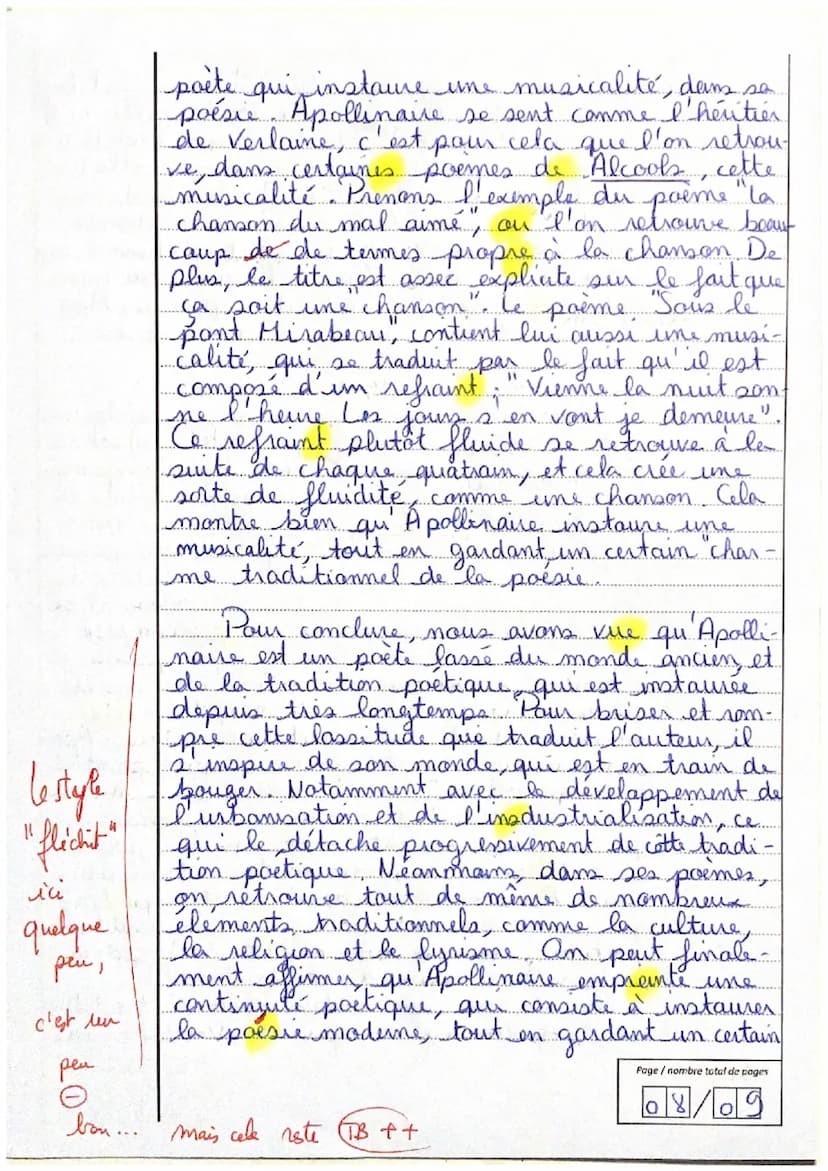 poète qui instaure une musicalité, dans sa
poésie. Apollinaire se sent comme l'héritier
de Verlaine, c'est pour cela que l'on retrou-
ve, dans certaines poèmes de Alcools, cette
musicalité. Prenons l'exemple du poème "la
chanson du mal aimé", ou l'on retrouve beau-
coup de de termes propre à la chanson. De
plus, le titre est assec explicite sur le fait que
ça soit une "chanson". Le poème "Sous le
pont Mirabeau", contient lui aussi une musi-
calité, qui se traduit par le fait qu'il est
composé d'un refraint ; "Vienne la nuit son-
ne l'heure Les jours s'en vont je demeure".
Ce refraint plutôt fluide se retrouve à la
suite de chaque quatrain, et cela crée une
sorte de fluidité, comme une chanson. Cela
montre bien qu'Apollinaire instaure une
musicalité, tout en gardant un certain "char-
me traditionnel de la poésie.
Pour conclure, nous avons vue qu'Apolli-
naire est un poète lassé du monde ancien, et
de la tradition poétique, qui est instaurée
depuis très longtemps. Pour briser et rom-
pre cette lassitude que traduit l'auteur, il
s'inspire de son monde, qui est en train de
bouger. Notamment avec le développement de
l'urbanisation et de l'insdustrialisation, ce
qui le détache progressivement de côtte tradi-
tion poétique. Néanmoins, dans ses poèmes,
on retrouve tout de même de nombreux
élements traditionnels, comme la culture,
la religion et le lyrisme. On peut finale-
ment affirmer, qu'Apollinaire empreinte une
continuité poétique, qui consiste à instaurer
la poésie moderne, tout en gardant un certain
Le style
"fléchit"
ici
quelque
peu,
c'est un
peu
⊖
bon...
mais cela reste TB ++
Page / nombre total de pages
08/09